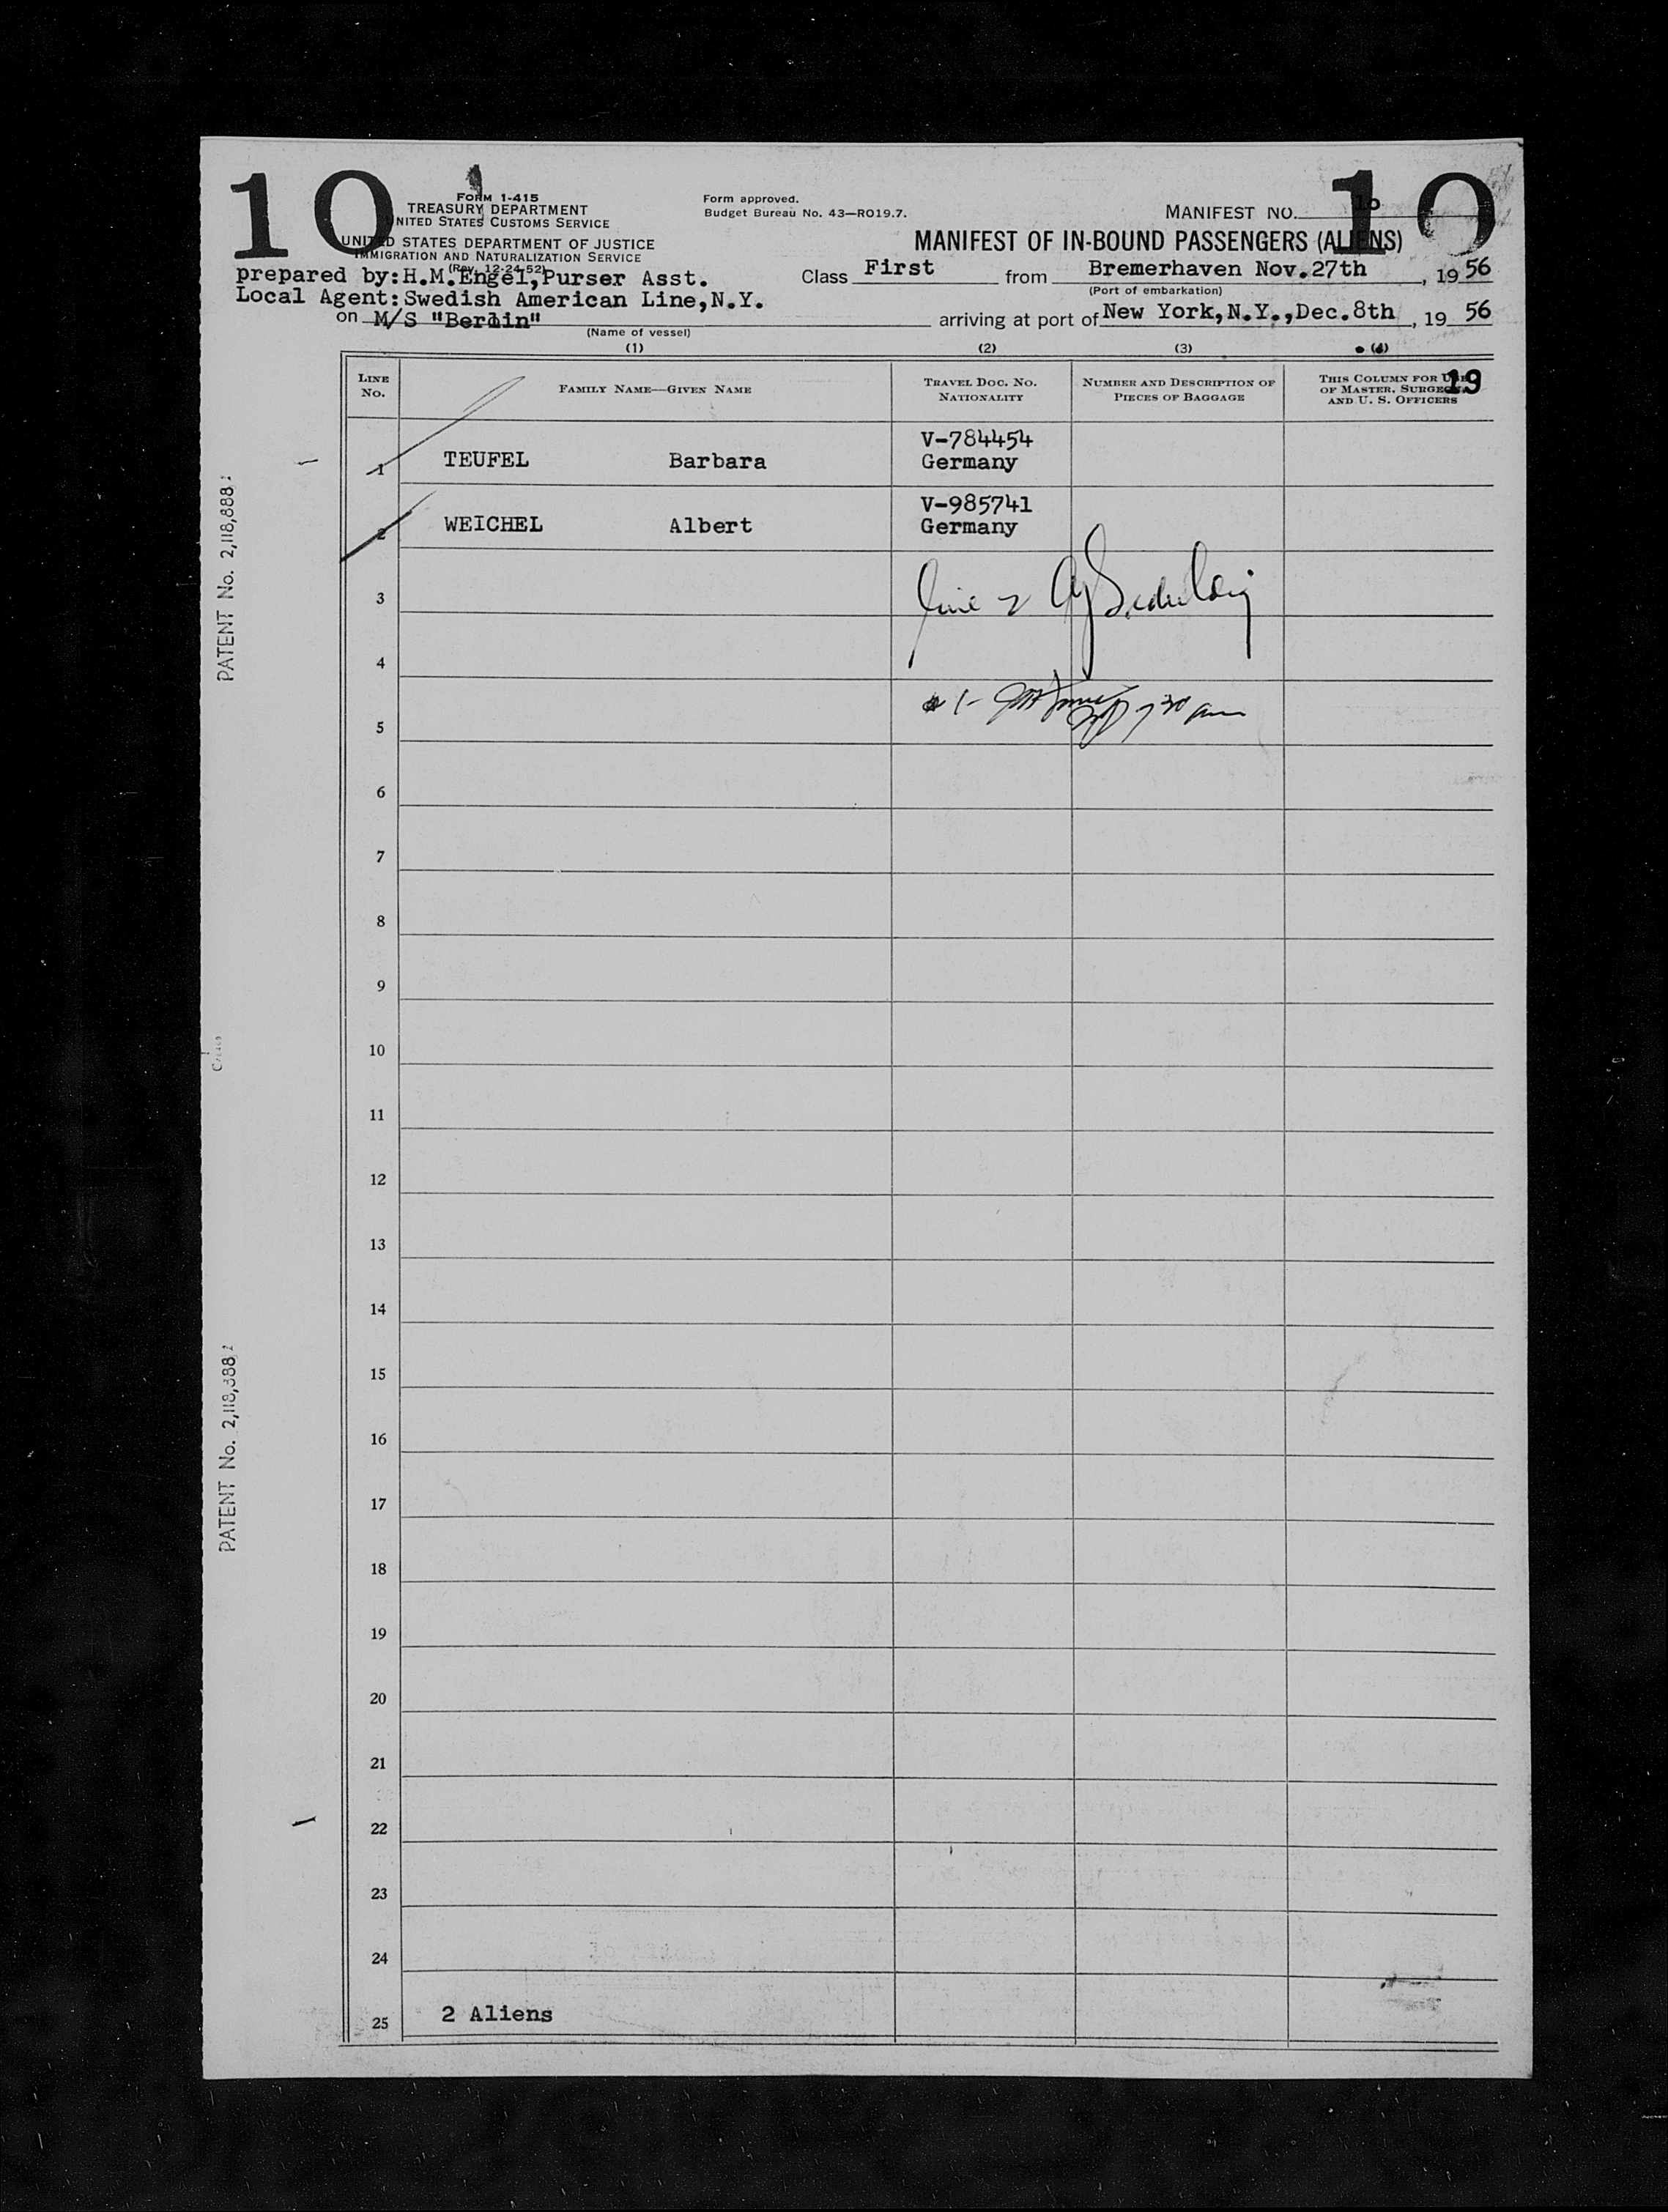 10
10
FORM 1-415
TREASURY DEPARTMENT
UNITED STATES CUSTOMS SERVICE
UNITED STATES DEPARTMENT OF JUSTICE
IMMIGRATION AND NATURALIZATION SERVICE
(Rev. 12-24-52)
Form approved.
Budget Bureau No. 43—RO19.7.
MANIFEST NO. 10
MANIFEST OF IN-BOUND PASSENGERS (ALIENS)
prepared by:H.M.Engel,Purser Asst.
Local Agent:Swedish American Line,N.Y.
Class First from Bremerhaven Nov.27th, 1956
(Port of embarkation)
on M/S "Berlin" arriving at port of New York,N.Y.,Dec.8th, 19 56
(Name of vessel)
(1) (2) (3) (4)
LINE No. FAMILY NAME—GIVEN NAME TRAVEL DOC. NO. NATIONALITY NUMBER AND DESCRIPTION OF PIECES OF BAGGAGE THIS COLUMN FOR USE OF MASTER, SURGEON, AND U. S. OFFICERS
19
V-784454
1 TEUFEL Barbara Germany
V-985741
2 WEICHEL Albert Germany
3
4
5
6
7
8
9
10
11
12
13
14
15
16
17
18
19
20
21
22
23
24
25 2 Aliens
PATENT No. 2,118,888
PATENT No. 2,118,888